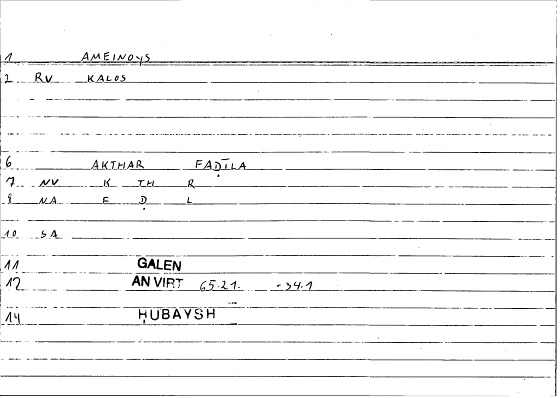 1 AMEINOYS
2 RV KALOS
6 AKTHAR FAḌĪLA
7 NV K TH R
8 NA F Ḍ L
10 SA
11 GALEN
12 AN VIRT 65.21. -34.1
14 ḤUBAYSH